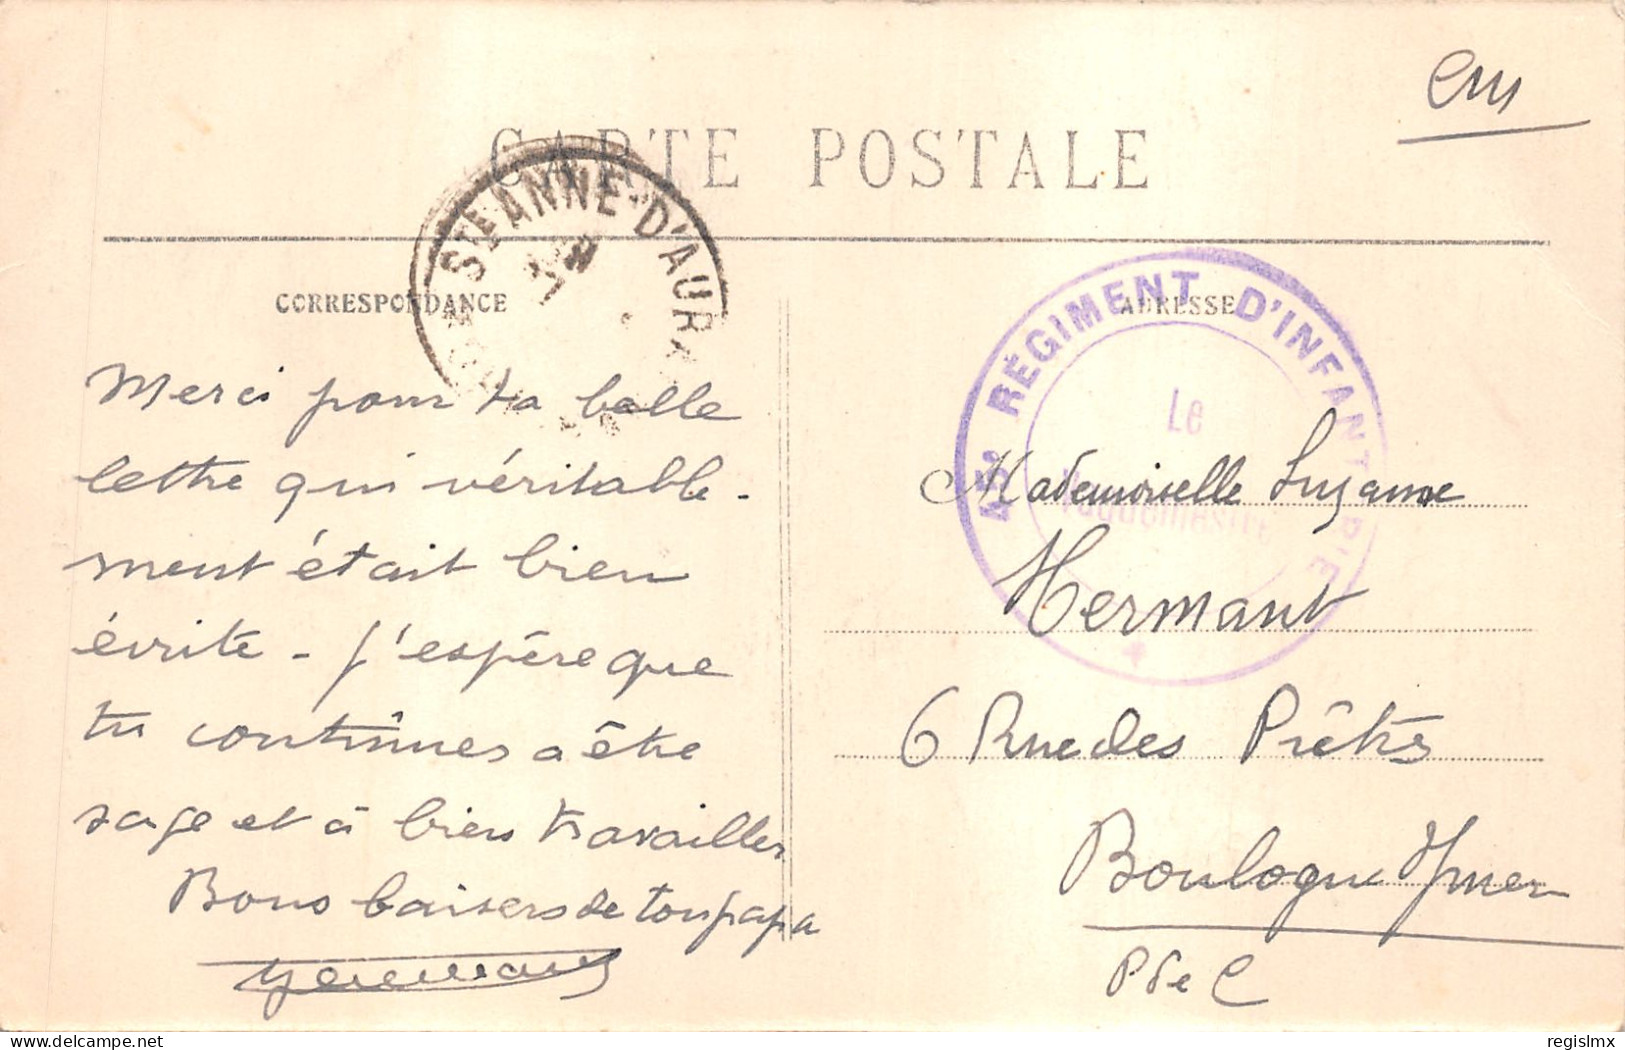 CARTE POSTALE
STE ANNE-D'AURAY
CORRESPONDANCE
Merci pour ta belle
lettre qui véritable-
ment était bien
écrite - j'espère que
tu continues a être
sage et à bien travailler
Bons baisers de ton papa
45e RÉGIMENT D'INFANTERIE
Le
Vaguemestre
ADRESSE
Mademoiselle Suzanne
Hermant
6 Rue des Prêtres
Boulogne s/mer
P de C
delcampe.net
regislmx